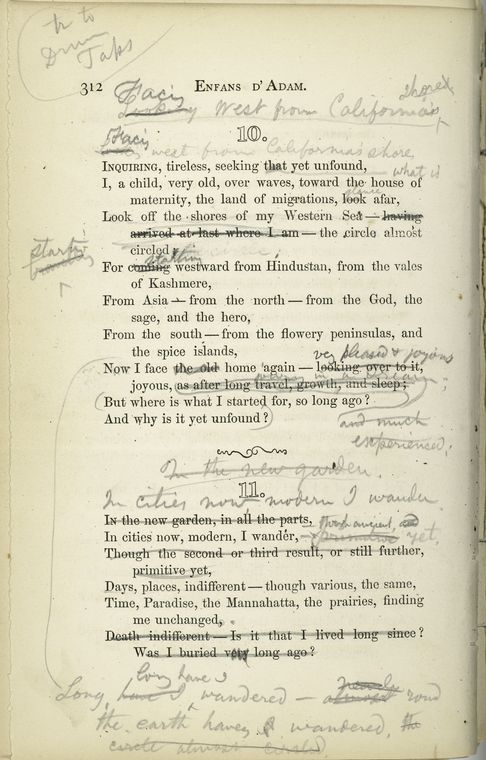 tr to
Drum
Taps
312
ENFANS D'ADAM.
Facing
shores
Looking West from California's
10.
Facing
west from California's shore
INQUIRING, tireless, seeking that yet unfound,
what is
I, a child, very old, over waves, toward the house of
maternity, the land of migrations, look afar,
Look off the shores of my Western Sea — having
arrived at last where I am — the circle almost
circled;
starting
starting
For coming westward from Hindustan, from the vales
of Kashmere,
From Asia — from the north — from the God, the
sage, and the hero,
From the south — from the flowery peninsulas, and
the spice islands,
very pleased & joyous
Now I face the old home again — looking over to it,
joyous, as after long travel, growth, and sleep;
But where is what I started for, so long ago?
And why is it yet unfound?
and much
experienced.
In the new garden.
11.
In cities now modern I wander
In the new garden, in all the parts,
In cities now, modern, I wander,
primitive yet,
Though the second or third result, or still further,
primitive yet,
Days, places, indifferent — though various, the same,
Time, Paradise, the Mannahatta, the prairies, finding
me unchanged,
Death indifferent — Is it that I lived long since?
Was I buried very long ago?
long have I
Long, have I wandered — almost round
nearly
the earth having wandered, the
circle almost circled